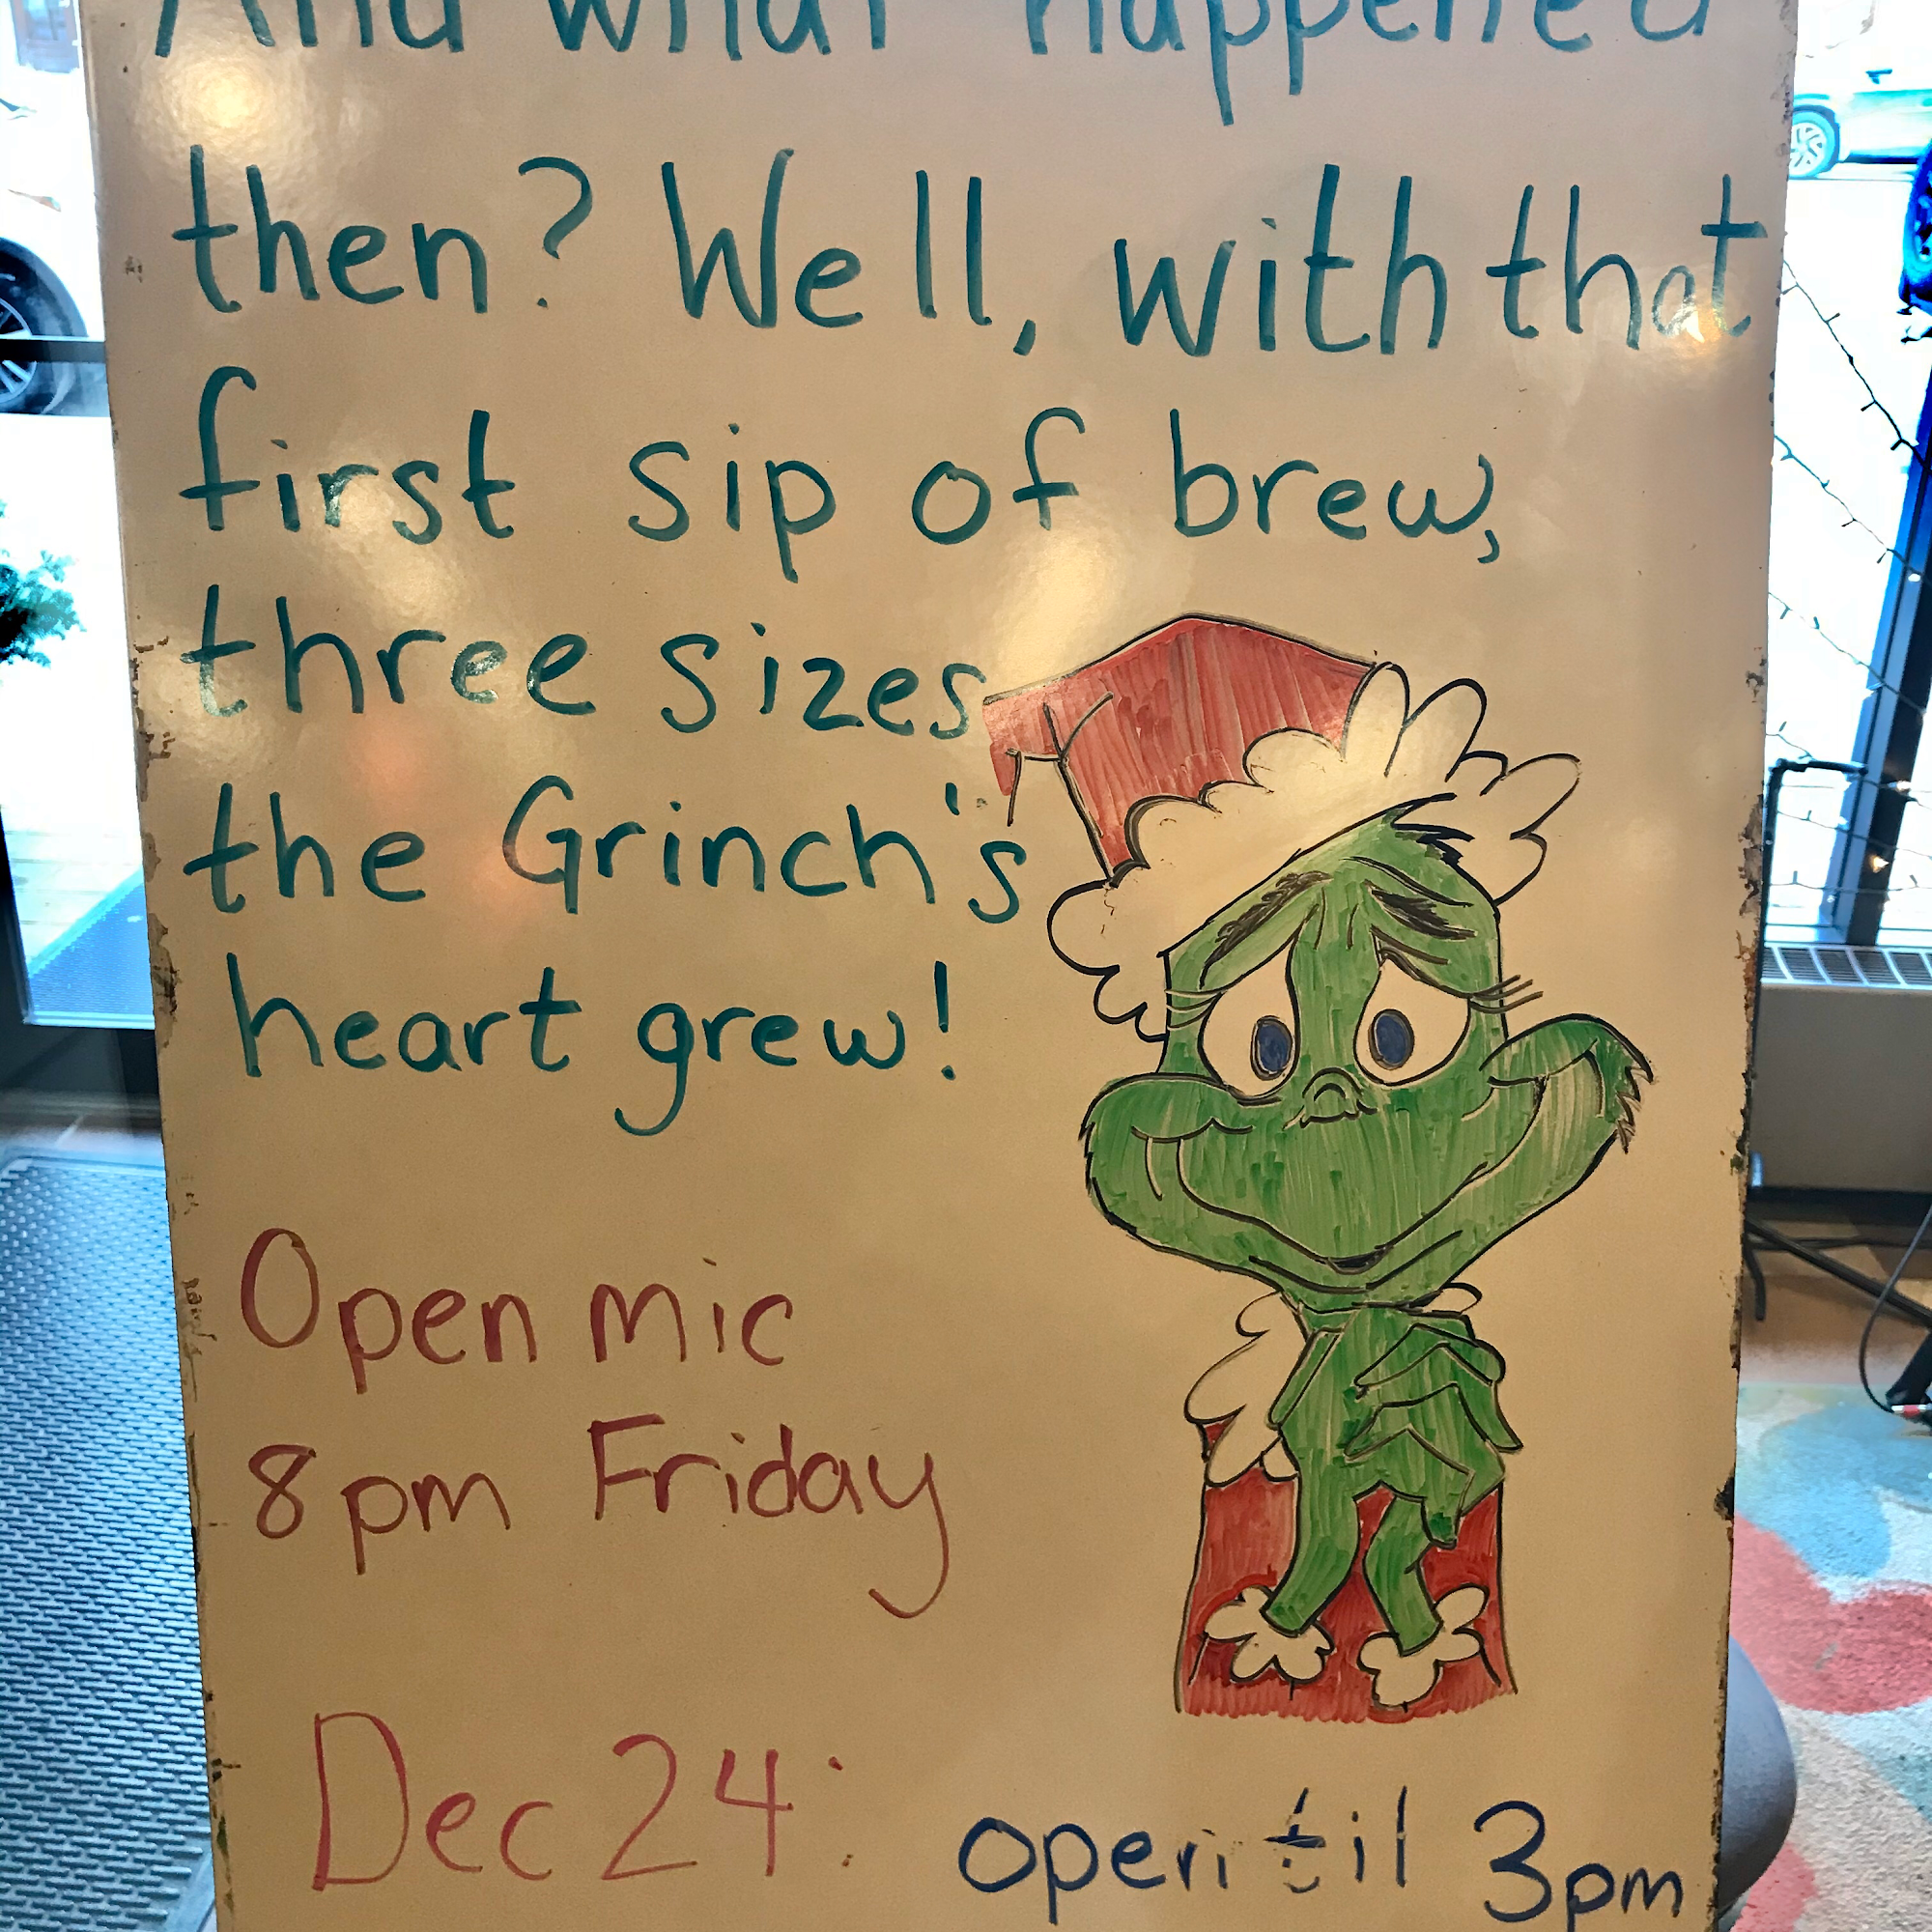 And what happened
then? Well, with that
first sip of brew,
three sizes
the Grinch's
heart grew!
Open mic
8pm Friday
Dec 24: open til 3pm